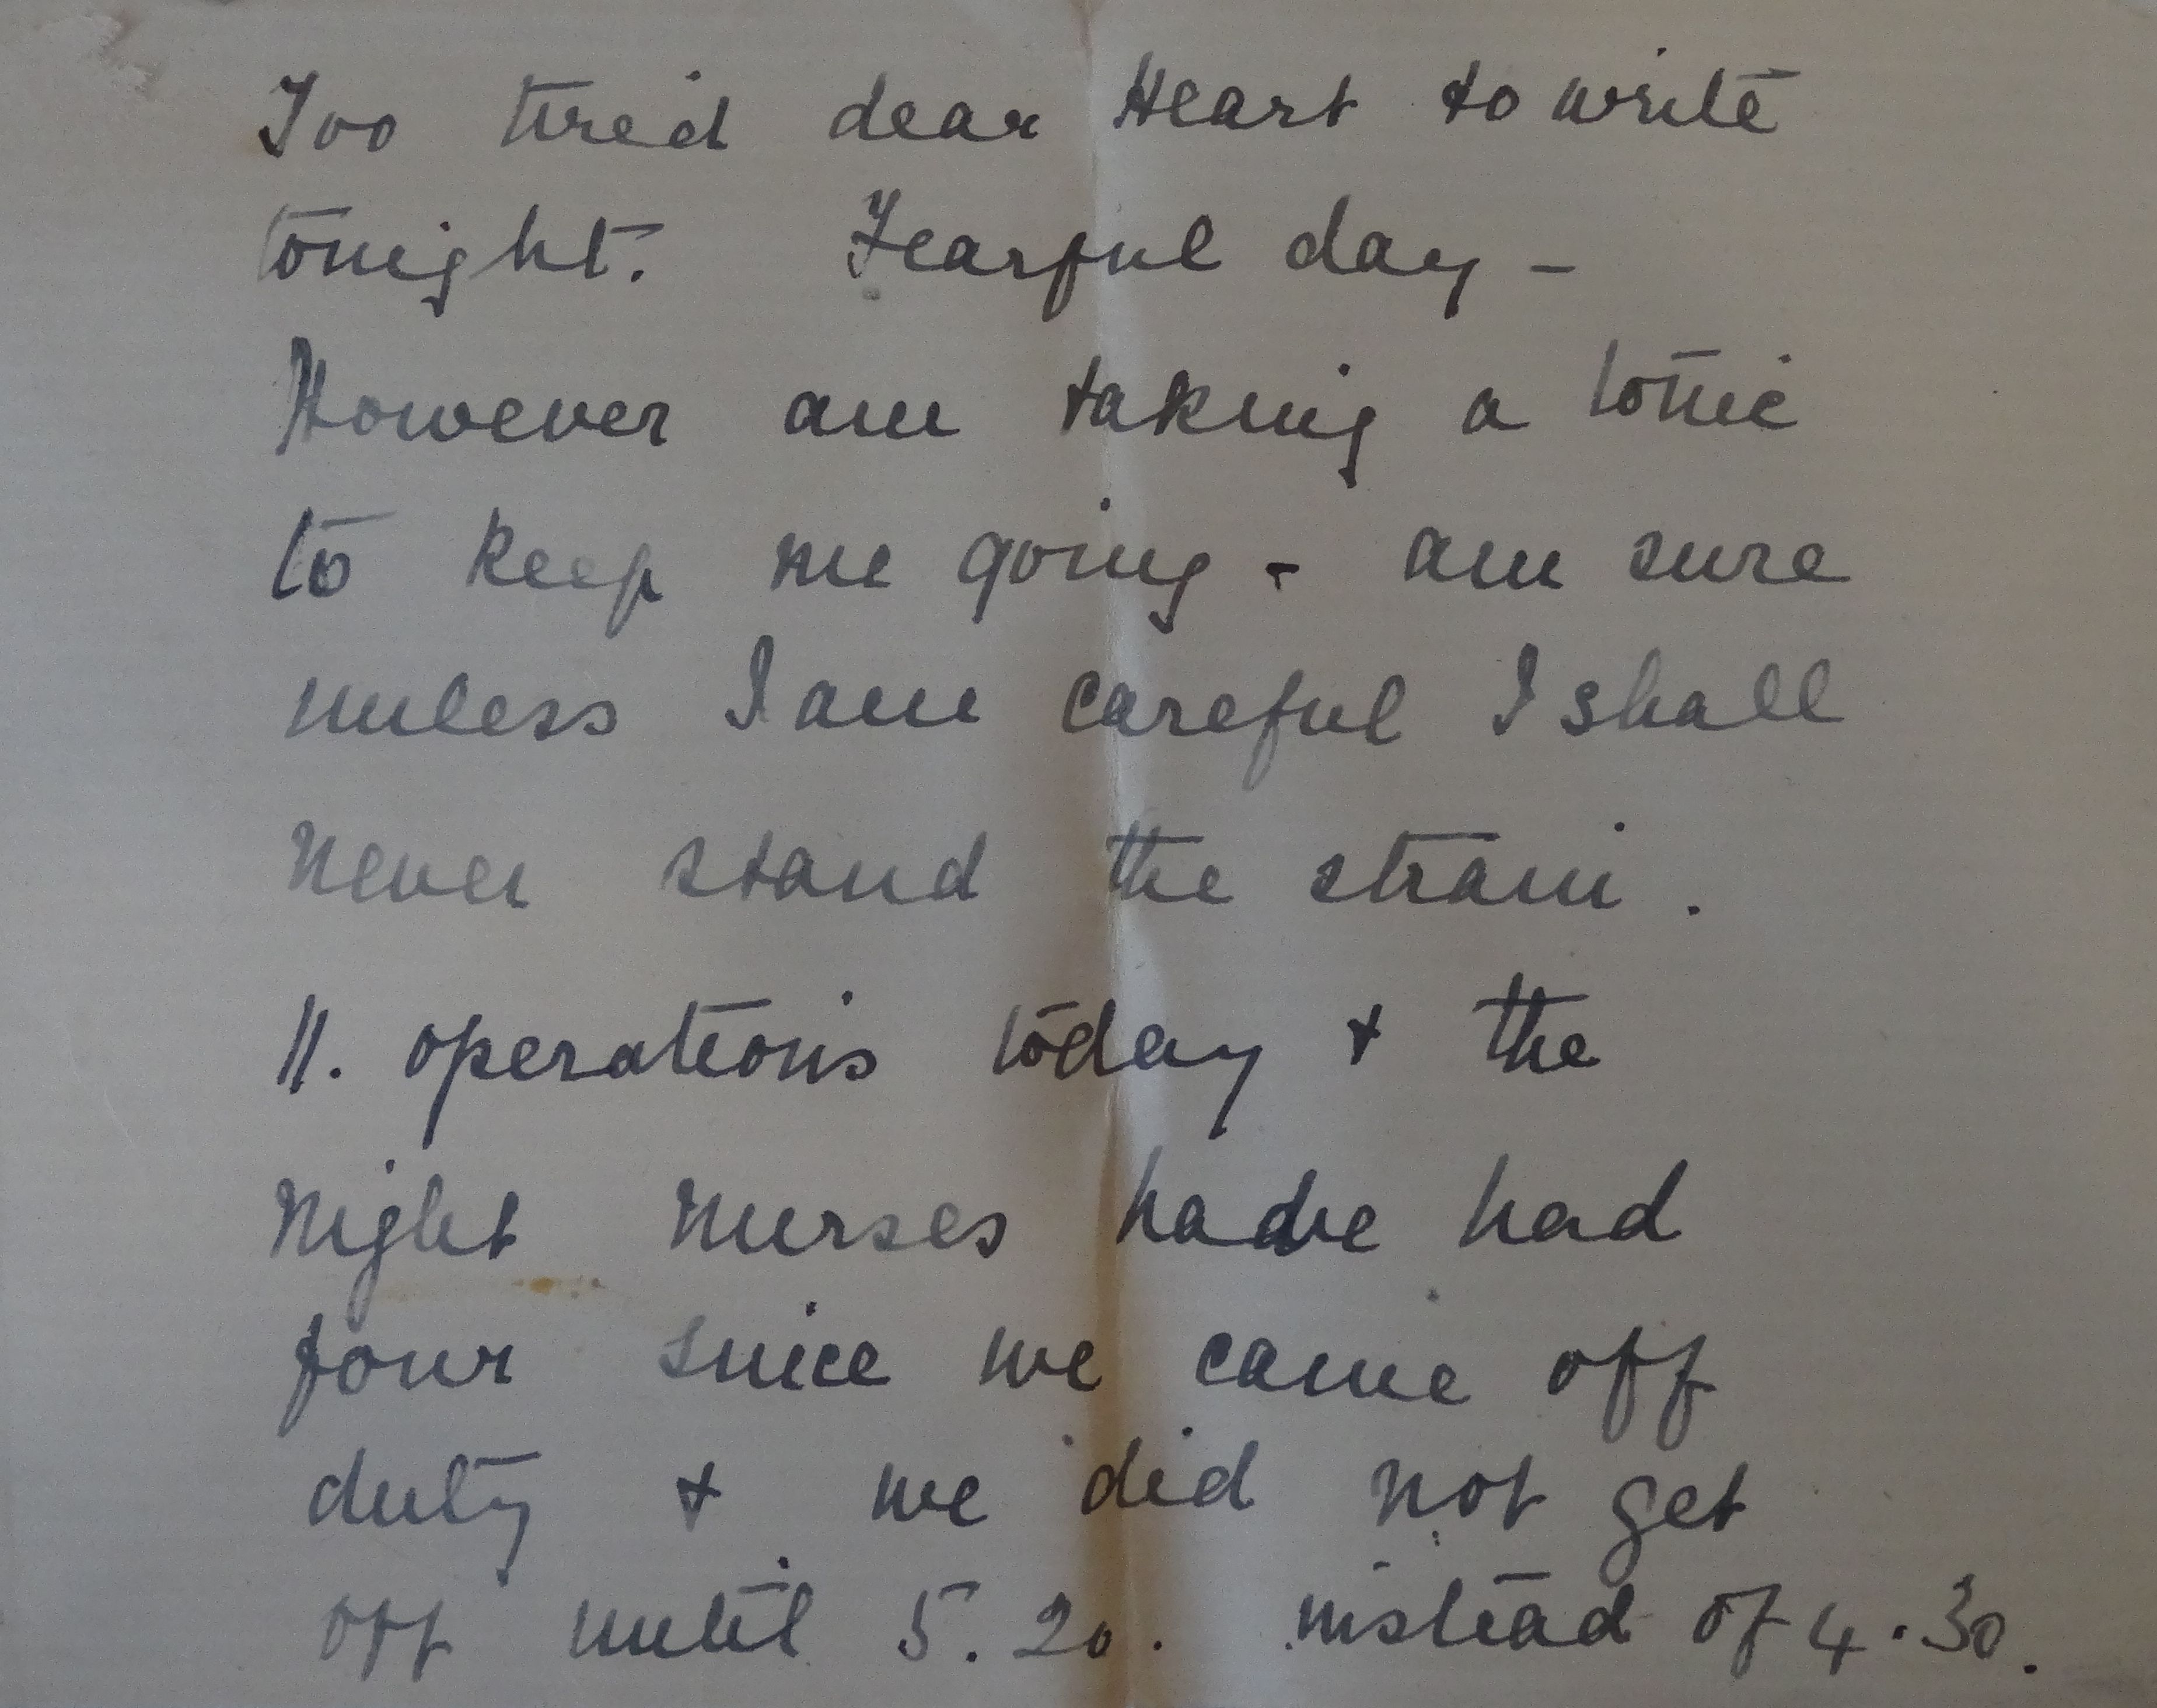 Too tired dear Heart to write
tonight. Fearful day -
However am taking a tonic
to keep me going - am sure
unless I am careful I shall
never stand the strain.
11. operations today + the
night nurses have had
four since we came off
duty + we did not get
off until 5.20. instead of 4.30.